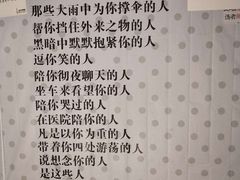 那些大雨中为你撑伞的人
帮你挡住外来之物的人
黑暗中默默抱紧你的人
逗你笑的人
陪你彻夜聊天的人
坐车来看望你的人
陪你哭过的人
在医院陪你的人
凡是以你为重的人
带着你四处游荡的人
说想念你的人
是这些人